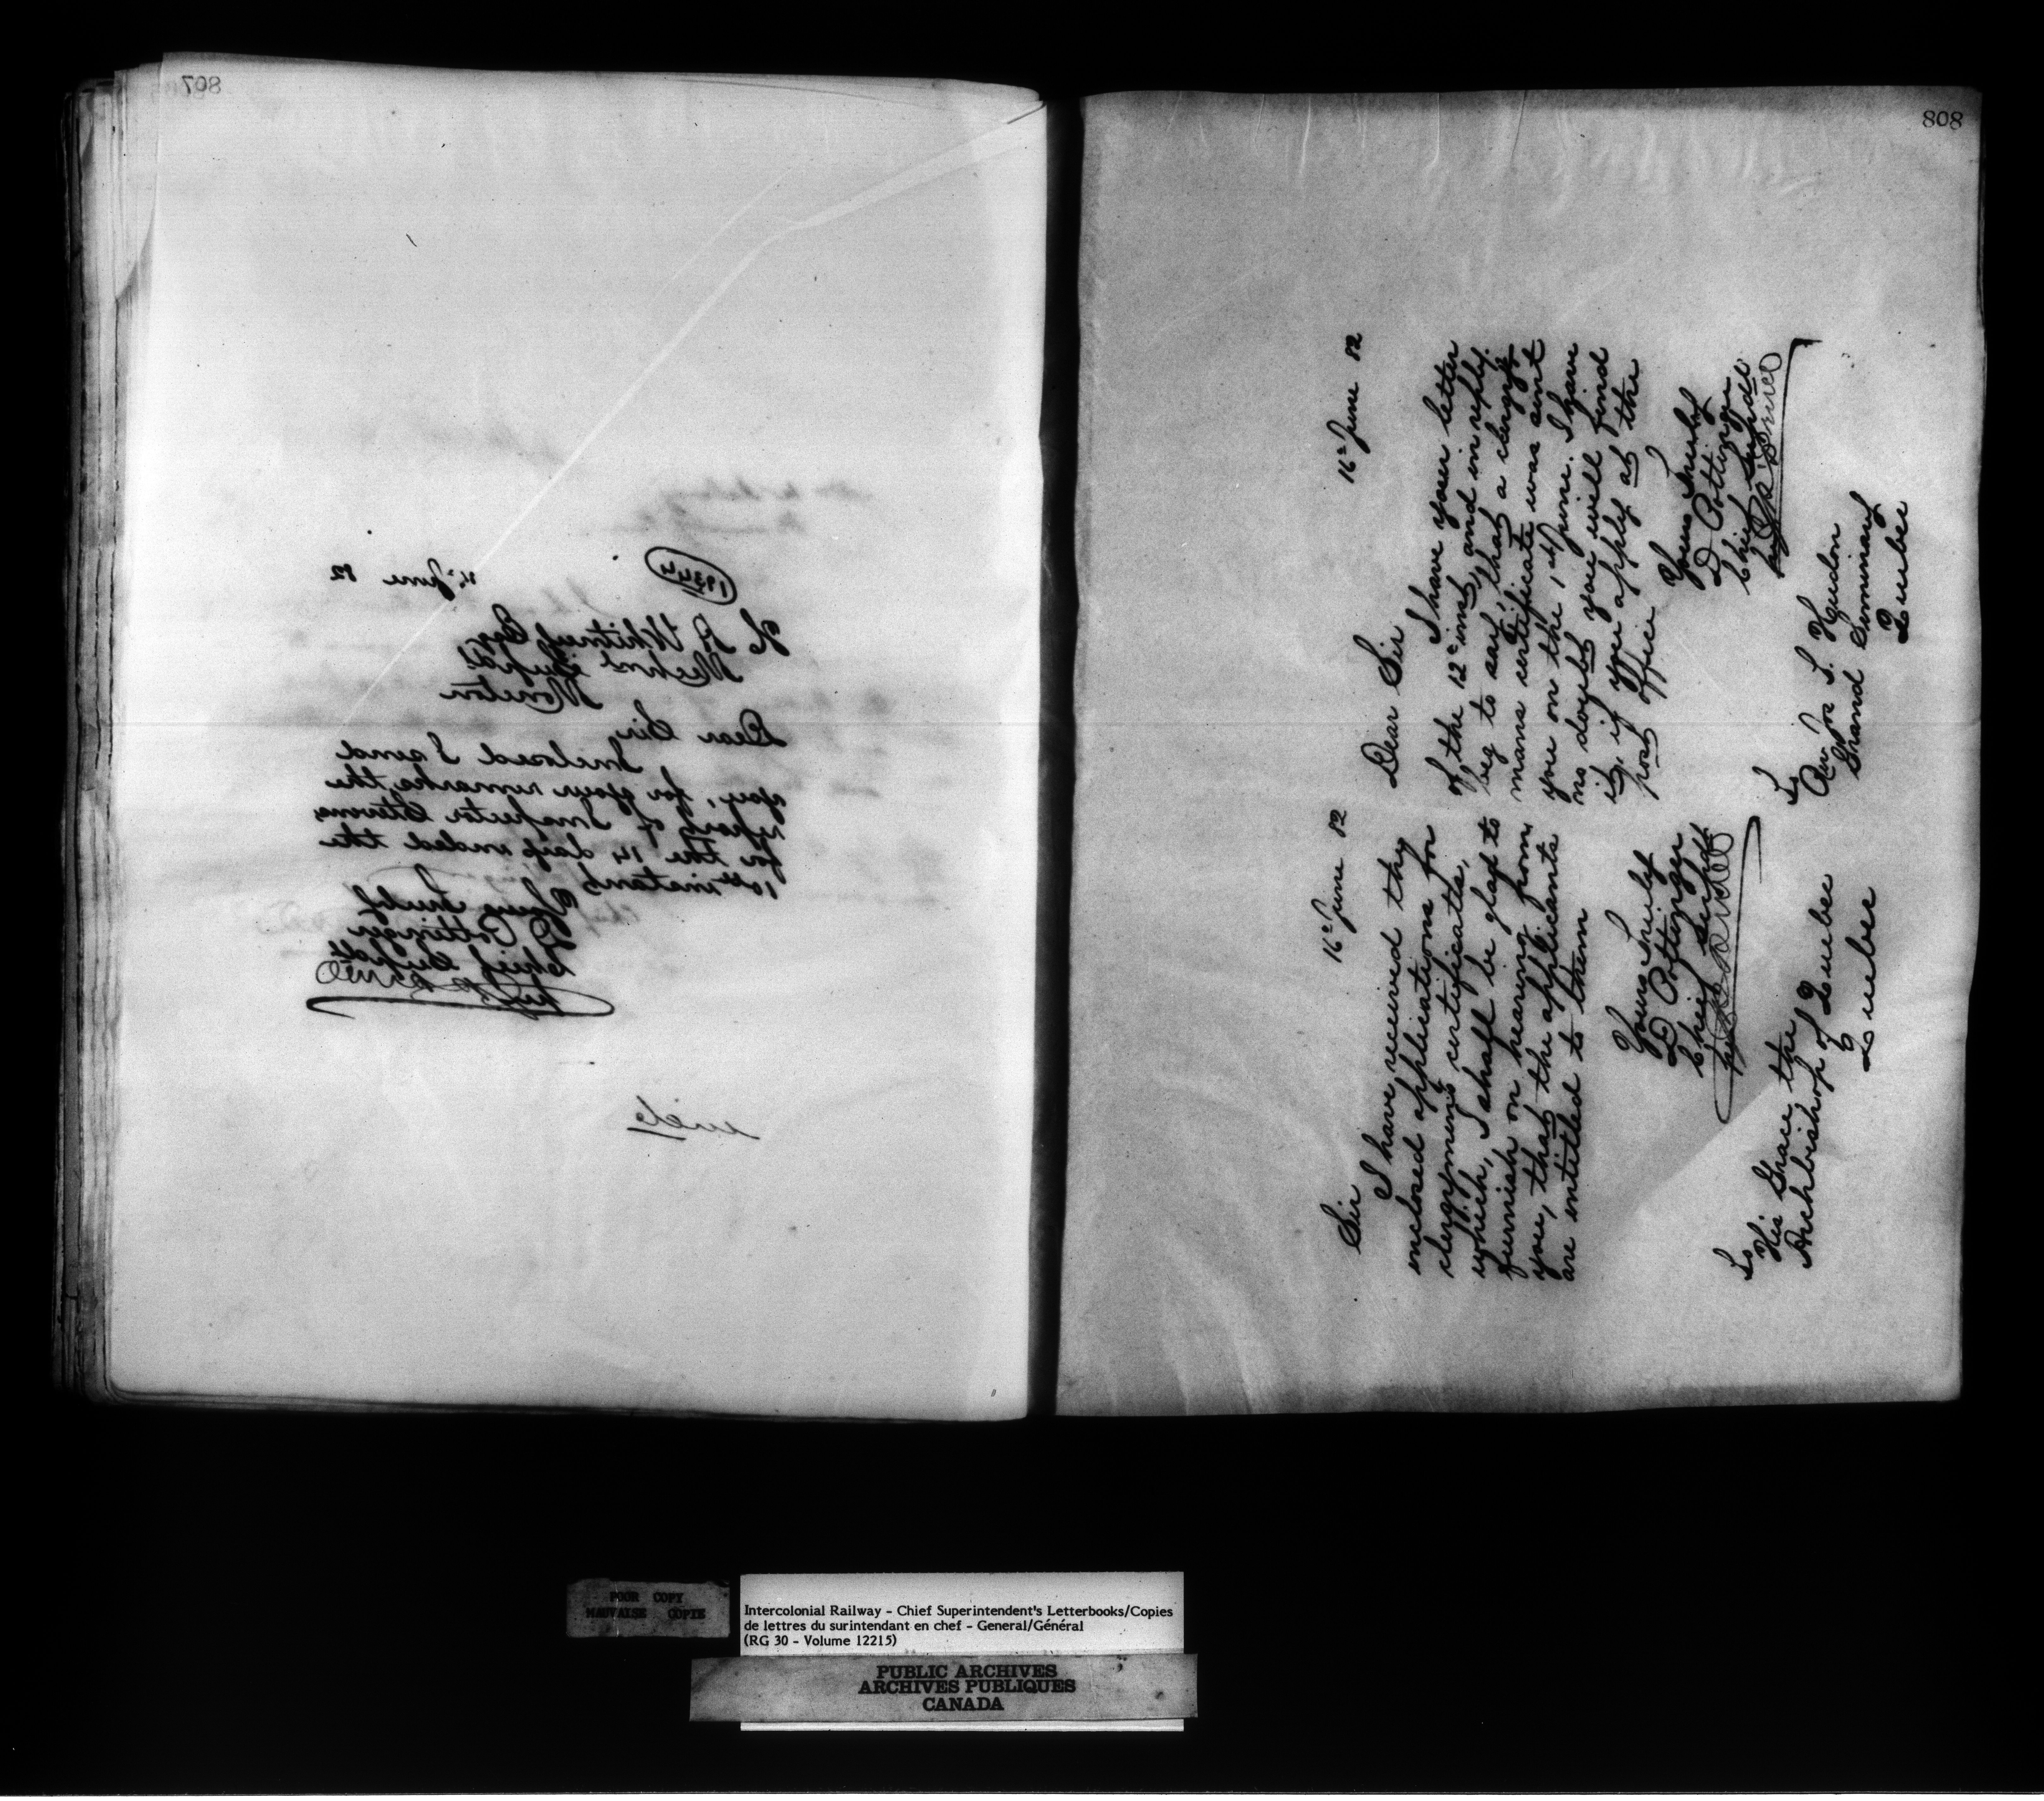 807
19344
16th June 82
H. A. Whitney Esq
Mechnl Supdt
Moncton
Dear Sir,
Inclosed I send
you, for your remarks, the
report of Inspector Stevens,
for the 14 days ended the
10th instant
Yours truly
D Pottinger
Chief Supdt
encls
808
16th June 82
Sir
I have received thy
enclosed applications for
clergymens certificates,
which, I shall be glad to
furnish on hearing from
you, that the applicants
are entitled to them
Yours truly
D Pottinger
Chief Supdt
To
His Grace the
Archbishop of Quebec
Quebec
16th June 82
Dear Sir
I have your letter
of the 12th inst, and in reply
beg to say, that a clergy-
mans certificate was sent
you on the 1st June. I have
no doubt you will find
it, if you apply at the
post office
Yours truly
D Pottinger
Chief Supdt
To
Revd Jos S. Hudon
Grand Seminary
Quebec
POOR COPY
MAUVAISE COPIE
Intercolonial Railway - Chief Superintendent's Letterbooks/Copies
de lettres du surintendant en chef - General/Général
(RG 30 - Volume 12215)
PUBLIC ARCHIVES
ARCHIVES PUBLIQUES
CANADA